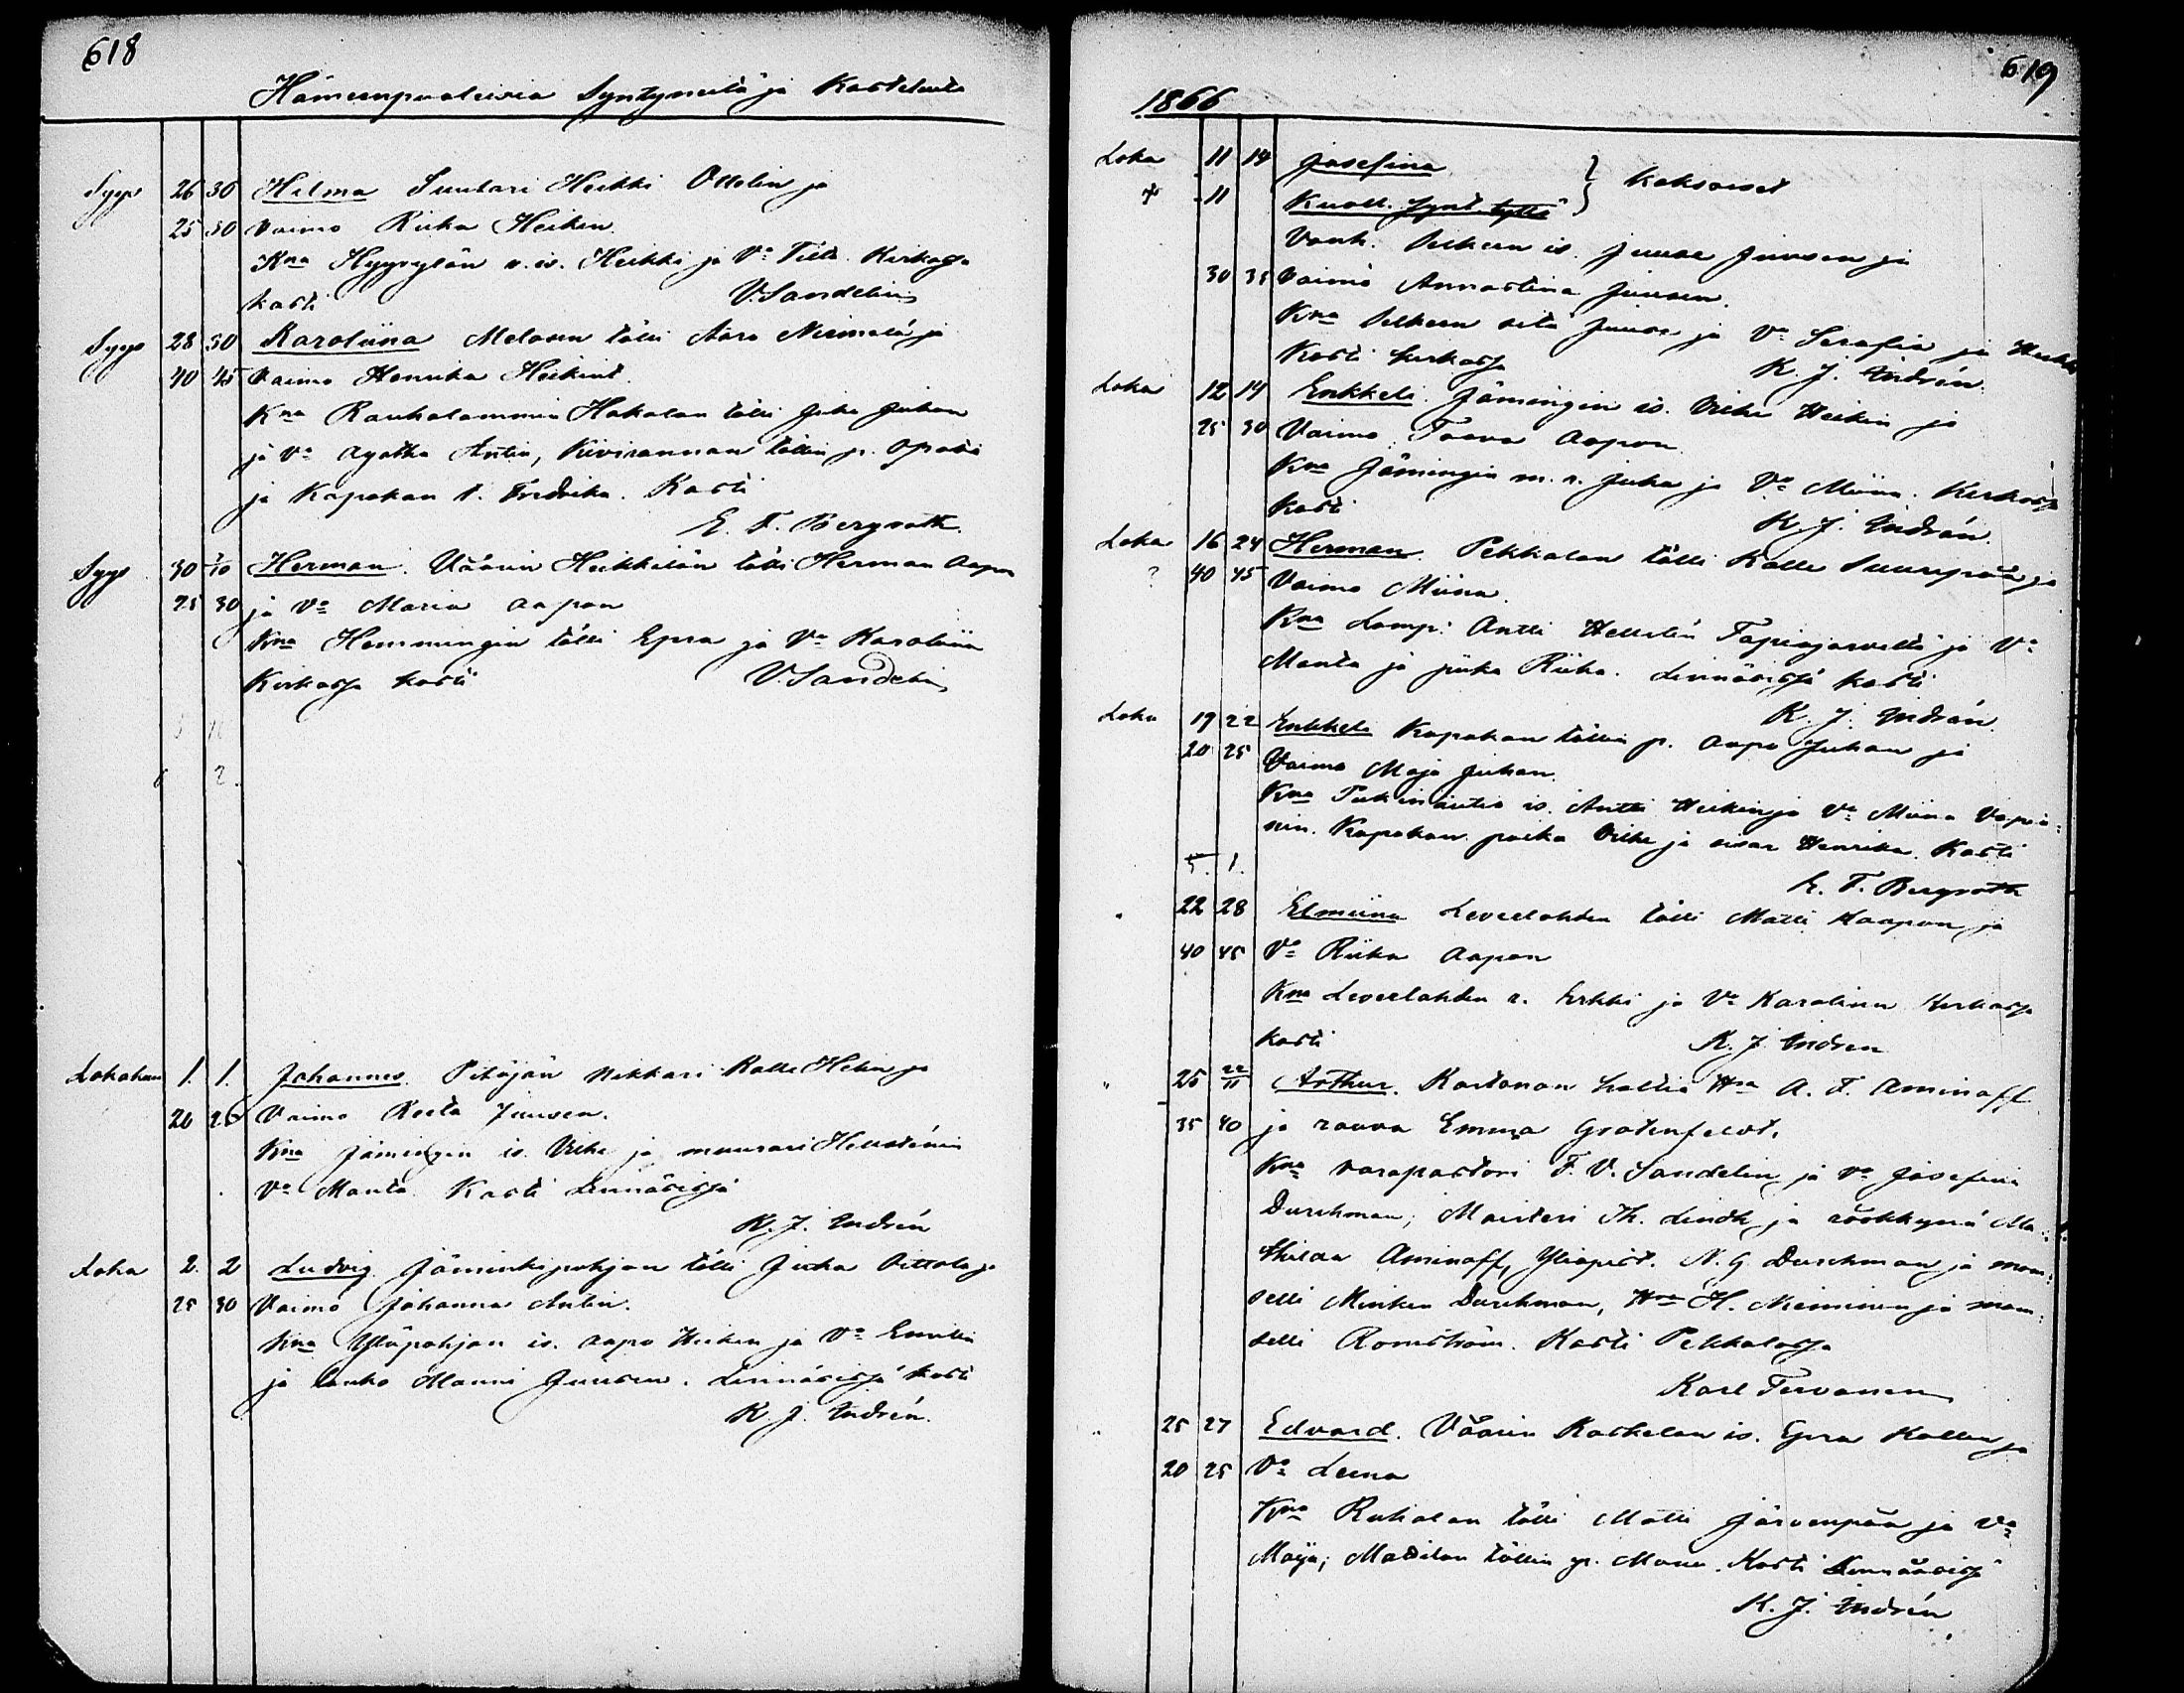 618
Hämeenpuoleisia Syntyneitä ja Kastetuita
Syys 26 30 Hilma Suutari Heikki Ottelin ja
25 30 Vaimo Riika Heikin.
Kna Hyyrylän r. is. Heikki ja Va Tilta. Kirkossa
kasti V. Sandelin
Syys 28 30 Karoliina Melasen tölli Aaro Niemelä ja
40 45 Vaimo Henrika Heikint.
Kna Rauhalammin Hakalan tölli Juha Juhan
ja Va Agatha Antin, Kivirannan töllin p. Oprai
ja Kapakan t. Fredrika. Kasti
E. F. Bergroth.
Syys 30 7/10 Herman. Väärin Heikkilän tölli Herman Aapon
25 30 ja Va Maria Aapon
Kna Hemmingin tölli Epra ja Va Karoliina
Kirkossa kasti V. Sandelin
Lokakuu 1. 1. Johannes. Pitäjän Nikkari Kalle Helin ja
20 25 Vaimo Reeta Juusen.
Kna Jämingin is. Vilhe ja muurari Hellsténin
Va Manta. Kasti Linnäisissä
K. J. Indrén
Loka 2. 2 Ludvig. Jäminkipohjan tölli Juha Aittola ja
25 30 Vaimo Johanna Antin.
Kna Yläpohjan is. Aapo Heikin ja Va Emilia
ja lanko Manni Juusen. Linnäisissä kasti
K. J. Indrén.
619
1866
Loka 11 14 Josefina } Kaksoiset
+ 11 Kuoll. synt. tyttö
Vanh. Selkeen is. Juuse Juusen ja
30 35 Vaimo Annastina Juusen.
Kna Selkeen setä Juuse ja Va Serafia ja Heikki
Kasti kirkossa K. J. Indrén.
Loka 12 14 Enkkeli. Jämingin is. Vilhe Heikin ja
25 30 Vaimo Taava Aapon.
Kna Jämingin m. r. Juha ja Va Miina. Kirkossa
kasti K. J. Indrén.
Loka 16 24 Herman. Pekkalan tölli Kalle Suurpää ja
? 40 45 Vaimo Miina.
Kna Lamp. Antti Hellstén Tapiojarvelta ja Va
Manta ja piika Riika. Linnäisissä kasti
K. J. Indrén.
Loka 19 22 Enkkeli Kapakan töllin p. Aapo Juhan ja
20 25 Vaimo Maja Juhan.
Kna is. Antti Heikin ja Va Miina
Kapakan poika Vilhe ja sisar Henrika. Kasti
5. 1. E. F. Bergroth
22 28 Elmiina Leveelahden tölli Matti Kaapon ja
40 45 Va Riika Aapon
Kna Leveelahden r. Erkki ja Va Karolina Kirkossa
kasti K. J. Indren
" 25 22/11 Arthur. Kartanon haltia Hra A. F. Aminoff
35 40 ja rouva Emma Grotenfelt.
Kna varapastori F. V. Sandelin ja va Josefina
Durchman; Maisteri Th. Lindh ja röökkynä Ma:
thilda Aminoff, Yliopist. N. G. Durchman ja mam:
selli Minken Durchman, Hra H. Nieminen ja mam:
selli Romström. Kasti Pekkalassa
Karl Tervonen
" 25 27 Edvard. Väärin Koskelan is. Epra Kallen ja
20 25 Va Leena
Kna Ruhalan tölli Matti Järvenpää ja Va
Maija; Mattilan töllin p. Manu. Kasti Linnäisissä
K. J. Indrén